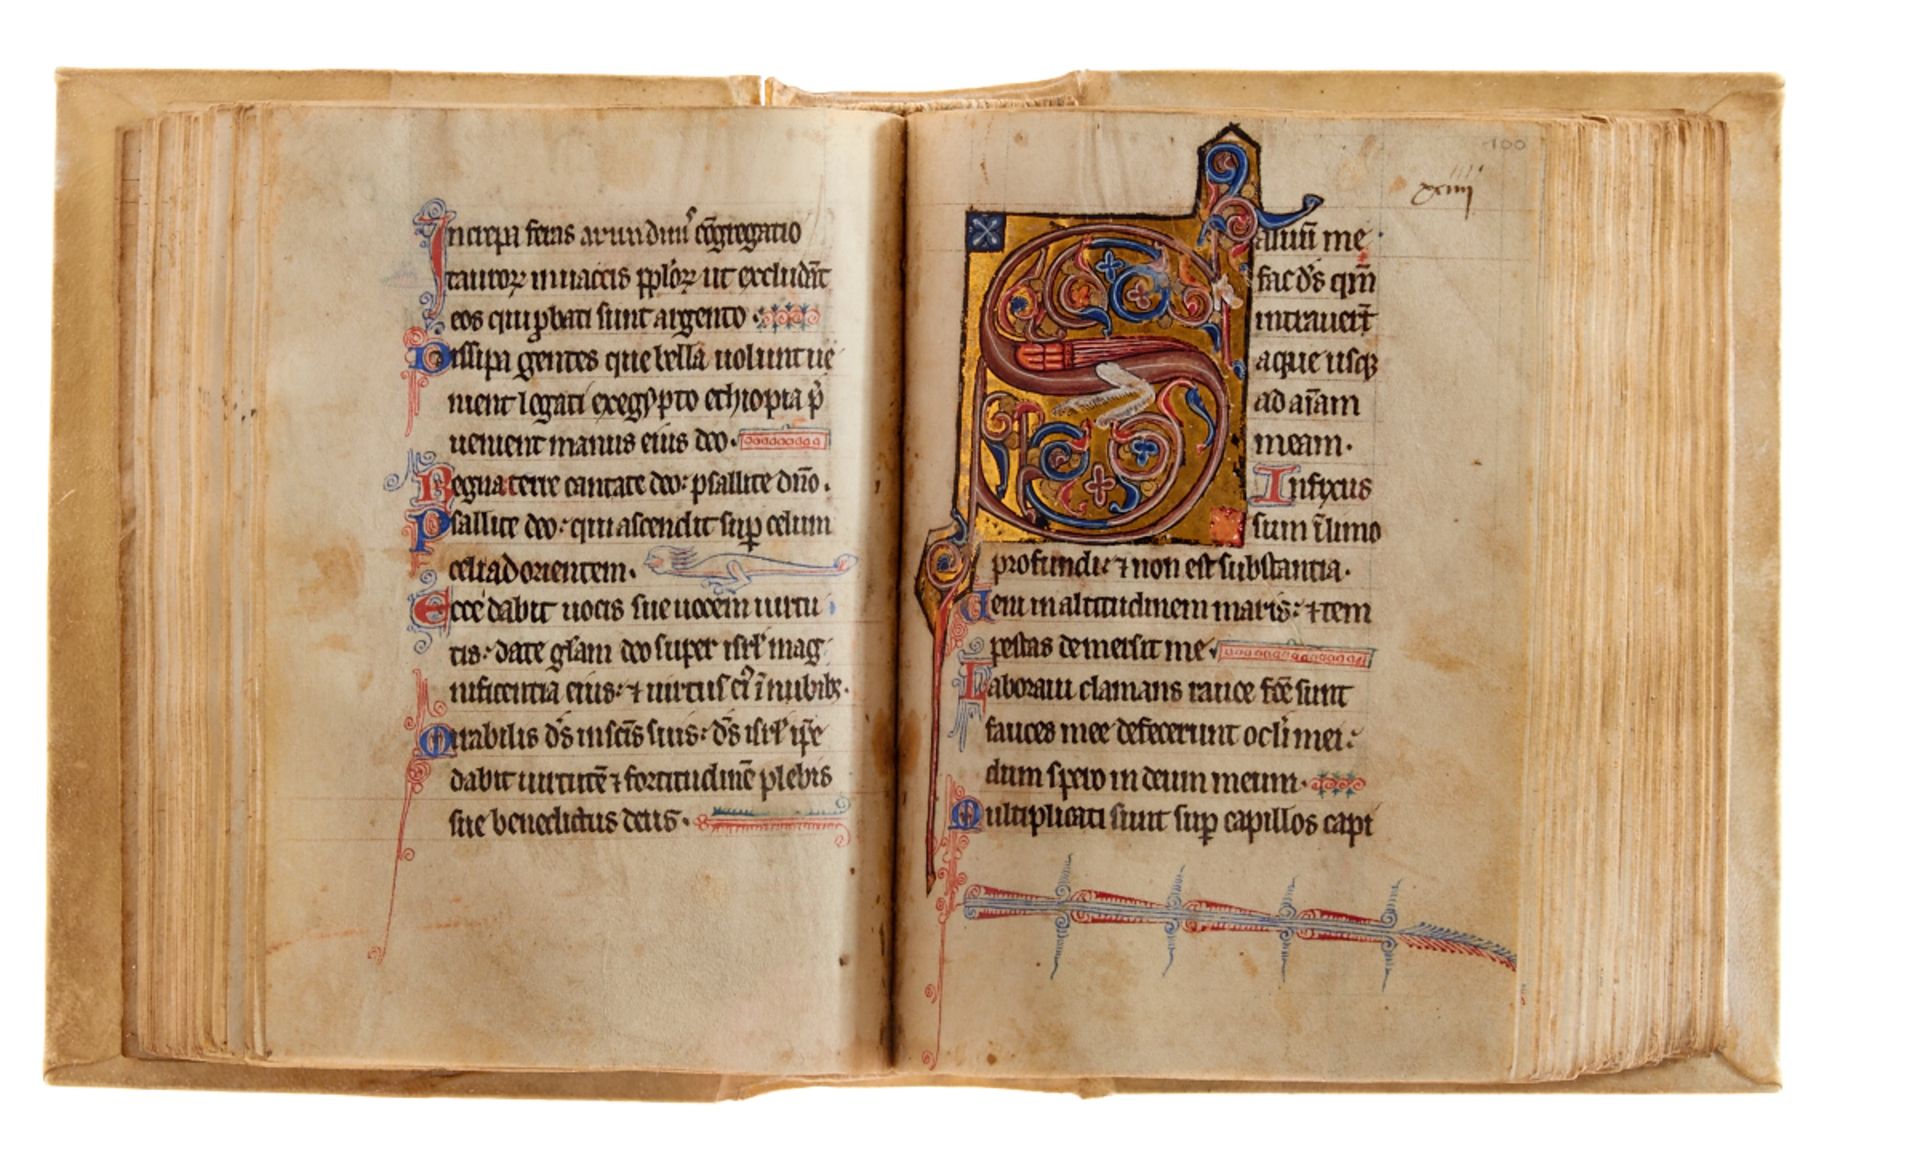 Increpa feras arundinis congregatio
tauroꝝ in uaccis ppľoꝝ ut excludāt
eos qui ꝓbati sunt argento
Dissipa gentes que bella uolunt ue
nient legati ex egypto ethiopia p̄
uenient manus eius deo.
Regna terre cantate deo: psallite dn̄o.
Psallite deo: qui ascendit suꝑ celum
celi ad orientem.
Ecce dabit uocis sue uocem uirtu
tis: date gl̄am deo super isrl̄ mag
nificentia eius: ⁊ uirtus ei᷒ ī nubibꝫ.
Mirabilis ds̄ in scīs suis: ds̄ isrl̄ ip̄e
dabit uirtutē ⁊ fortitudinē plebis
sue benedictus deus.
100
xxiiii
Saluū me
fac ds̄ qm̄
intrauer̄t
aque usqꝫ
ad aīam
meam.
Infixus
sum ī limo
profundi: ⁊ non est substantia.
Ueni in altitudinem maris: ⁊ tem
pestas demersit me.
Laboraui clamans rauce fc̄e sunt
fauces mee defecerunt ocl̄i mei:
dum spero in deum meum.
Multiplicati sunt suꝑ capillos capi